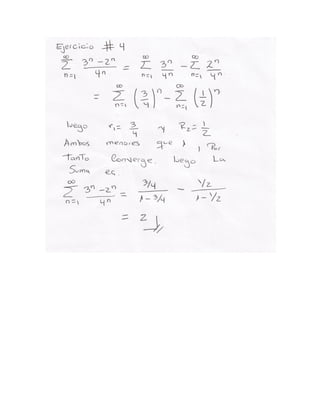 Ejercicio # 4
∞∑n=1 (3ⁿ - 2ⁿ)/4n = ∞∑n=1 3ⁿ/4ⁿ - ∞∑n=1 2ⁿ/4ⁿ
= ∞∑n=1 (3/4)ⁿ - ∞∑n=1 (1/2)ⁿ
luego r₁= 3/4 y R₂= 1/2
Ambos menores que 1, Por
TanTo Converge. Luego La
Suma es
∞∑n=1 (3ⁿ - 2ⁿ)/4ⁿ = (3/4)/(1 - 3/4) - (1/2)/(1 - 1/2)
= 2